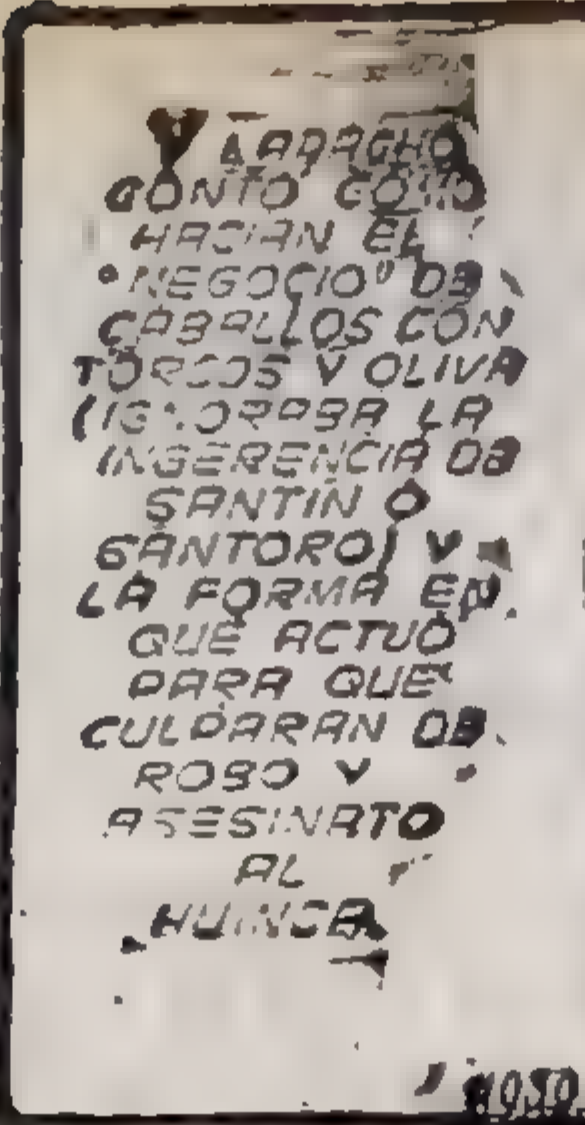 Y LARAGHO
CONTO COMO
HACIAN EL
"NEGOCIO" DE
CABALLOS CON
TORCOS Y OLIVA
(IGNORABA LA
INGERENCIA DE
SANTIN O
SANTORO) Y
LA FORMA EN
QUE ACTUÓ
PARA QUE
CULPARAN DE
ROBO Y
ASESINATO
AL
HUINCA